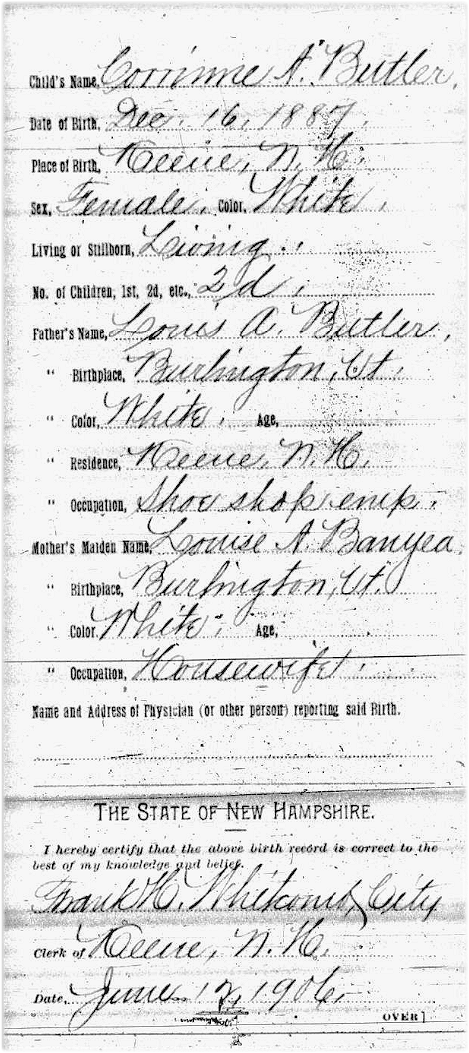 Child's Name, Corrinne A. Butler.
Date of Birth, Dec. 16, 1887.
Place of Birth, Keene, N. H.
Sex, Female. Color, White.
Living or Stillborn, Living.
No. of Children, 1st, 2d, etc., 2d.
Father's Name, Louis A. Butler,
" Birthplace, Burlington, Vt.
" Color, White. Age,
" Residence, Keene, N. H.
" Occupation, Shoe shop emp.
Mother's Maiden Name, Louise A. Banyea.
" Birthplace, Burlington, Vt.
" Color White. Age,
" Occupation, Housewife.
Name and Address of Physician (or other person) reporting said Birth.
THE STATE OF NEW HAMPSHIRE.
I hereby certify that the above birth record is correct to the
best of my knowledge and belief.
Frank H. Whitcomb, City
Clerk of Keene, N. H.
Date, June 12, 1906.
OVER]